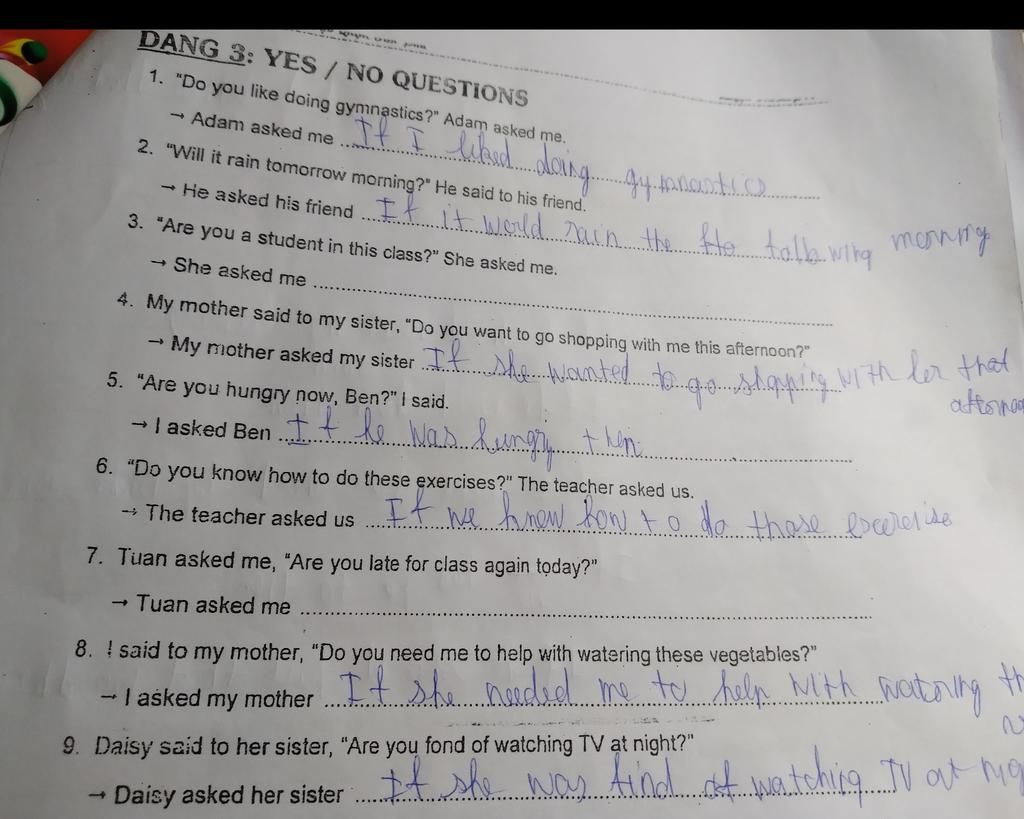 DẠNG 3: YES / NO QUESTIONS
1. "Do you like doing gymnastics?" Adam asked me.
→ Adam asked me If I liked doing gymnastics
2. "Will it rain tomorrow morning?" He said to his friend.
→ He asked his friend If it would rain the morning
3. "Are you a student in this class?" She asked me.
→ She asked me
4. My mother said to my sister, "Do you want to go shopping with me this afternoon?"
→ My mother asked my sister If she wanted to go shopping with her that
5. "Are you hungry now, Ben?" I said.
→ I asked Ben If he was hungry then
6. "Do you know how to do these exercises?" The teacher asked us.
→ The teacher asked us If we knew how to do those exercise
7. Tuan asked me, "Are you late for class again today?"
→ Tuan asked me
8. I said to my mother, "Do you need me to help with watering these vegetables?"
→ I asked my mother If she needed me to help with watering
9. Daisy said to her sister, "Are you fond of watching TV at night?"
→ Daisy asked her sister If she was find of watching TV at